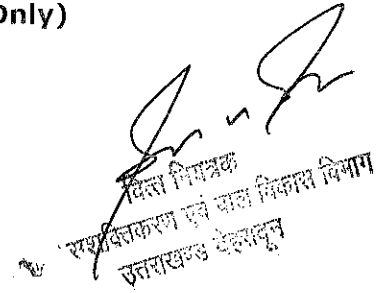 Only)
वित्त नियंत्रक
सशक्तिकरण एवं बाल विकास विभाग
उत्तराखण्ड देहरादून